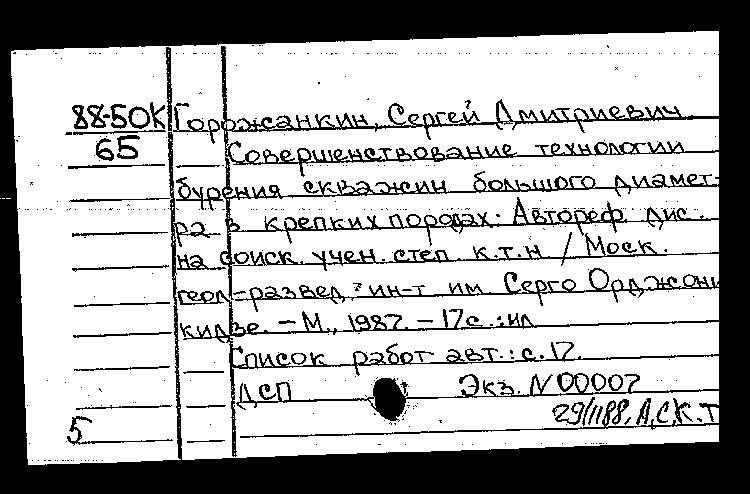 88-50К Горожанкин, Сергей Дмитриевич
65 Совершенствование технологии
бурения скважин большого диамет-
ра в крепких породах. Автореф. дис.
на соиск. учен. степ. к.т.н / Моск.
геол-развед. ин-т им. Серго Орджони
кидзе. - М., 1987. - 17с.: ил
Список работ авт.: с. 17.
ДСП Экз. N 00007
5 29/1188. А.С.К.Т